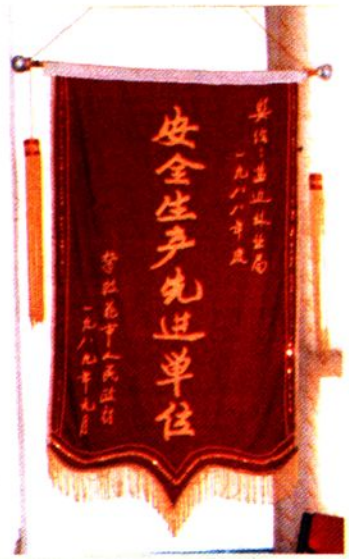 奖给：盐边林业局
一九八八年度
安全生产先进单位
攀枝花市人民政府
一九八九年元月